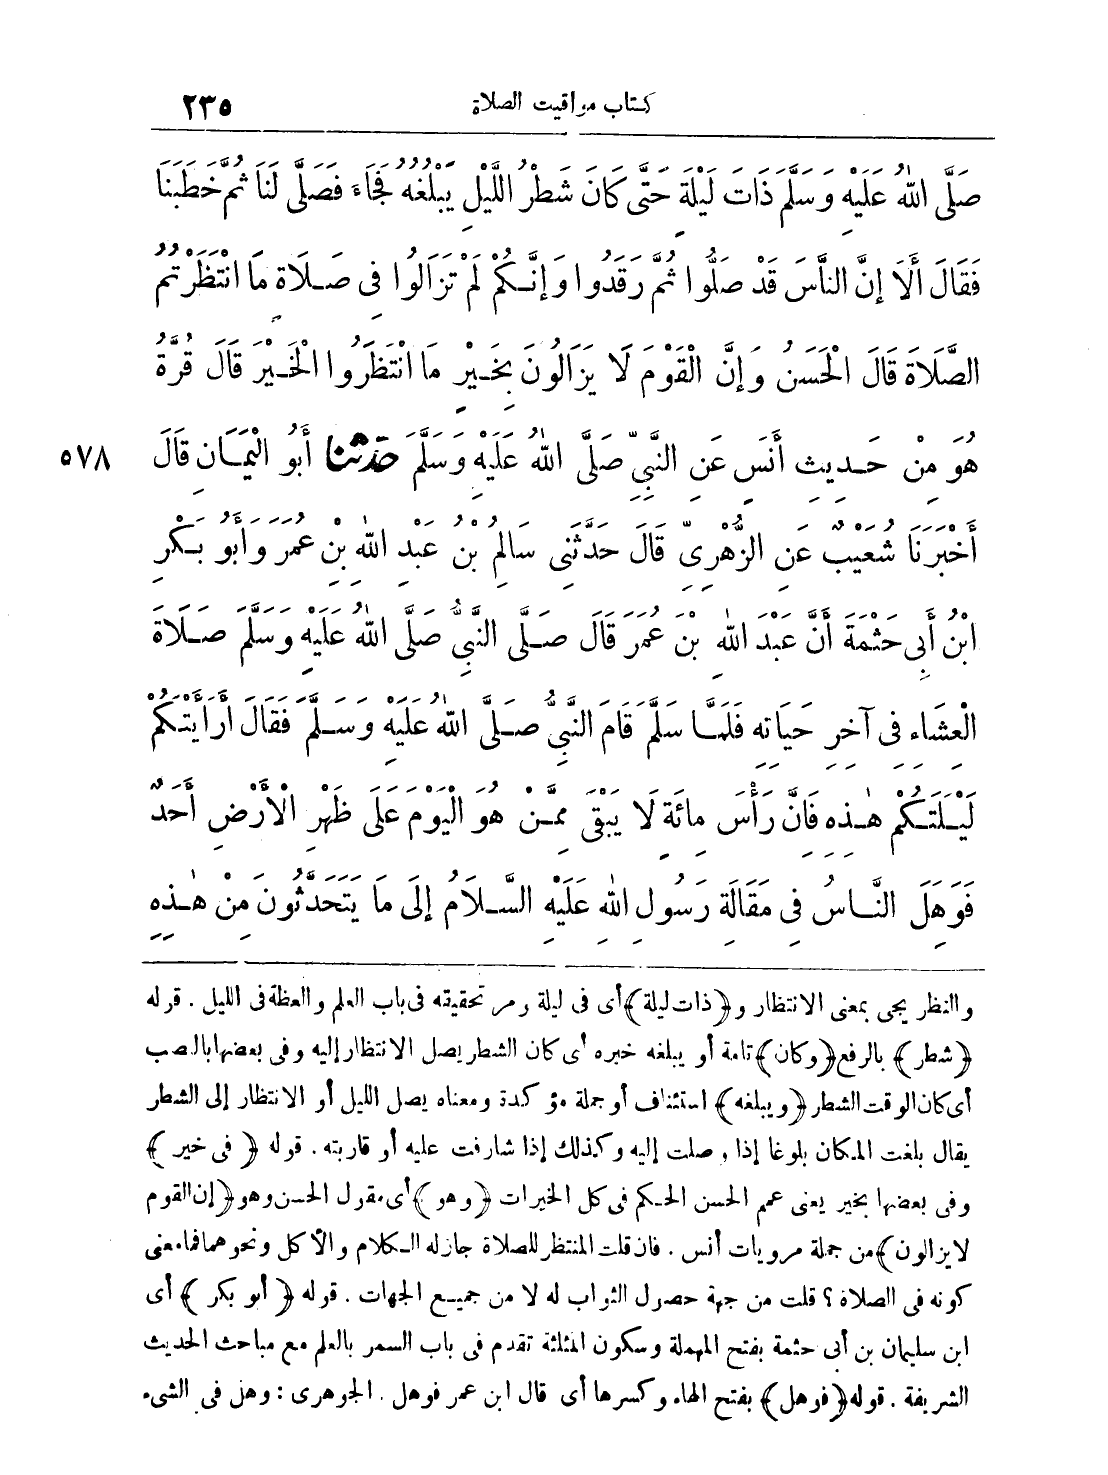 كتاب مواقيت الصلاة ٢٣٥
صَلَّى اللهُ عَلَيْهِ وَسَلَّمَ ذَاتَ لَيْلَةٍ حَتَّى كَانَ شَطْرُ اللَّيْلِ يَبْلُغُهُ فَجَاءَ فَصَلَّى لَنَا ثُمَّ خَطَبَنَا
فَقَالَ أَلَا إِنَّ النَّاسَ قَدْ صَلُّوا ثُمَّ رَقَدُوا وَإِنَّكُمْ لَمْ تَزَالُوا فِي صَلَاةٍ مَا انْتَظَرْتُمُ
الصَّلَاةَ قَالَ الْحَسَنُ وَإِنَّ الْقَوْمَ لَا يَزَالُونَ بِخَيْرٍ مَا انْتَظَرُوا الْخَيْرَ قَالَ قُرَّةُ
هُوَ مِنْ حَدِيثِ أَنَسٍ عَنِ النَّبِيِّ صَلَّى اللهُ عَلَيْهِ وَسَلَّمَ حَدَّثَنَا أَبُو الْيَمَانِ قَالَ ٥٧٨
أَخْبَرَنَا شُعَيْبٌ عَنِ الزُّهْرِيِّ قَالَ حَدَّثَنِي سَالِمُ بْنُ عَبْدِ اللهِ بْنِ عُمَرَ وَأَبُو بَكْرِ
ابْنُ أَبِي حَثْمَةَ أَنَّ عَبْدَ اللهِ بْنَ عُمَرَ قَالَ صَلَّى النَّبِيُّ صَلَّى اللهُ عَلَيْهِ وَسَلَّمَ صَلَاةَ
الْعِشَاءِ فِي آخِرِ حَيَاتِهِ فَلَمَّا سَلَّمَ قَامَ النَّبِيُّ صَلَّى اللهُ عَلَيْهِ وَسَلَّمَ فَقَالَ أَرَأَيْتَكُمْ
لَيْلَتَكُمْ هٰذِهِ فَإِنَّ رَأْسَ مِائَةٍ لَا يَبْقَى مِمَّنْ هُوَ الْيَوْمَ عَلَى ظَهْرِ الْأَرْضِ أَحَدٌ
فَوَهَلَ النَّاسُ فِي مَقَالَةِ رَسُولِ اللهِ عَلَيْهِ السَّلَامُ إِلَى مَا يَتَحَدَّثُونَ مِنْ هٰذِهِ
والنظر يجىء بمعنى الانتظار و﴿ذات ليلة﴾ أى فى ليلة ومر تحقيقه فى باب العلم والعظة فى الليل . قوله
﴿شطر﴾ بالرفع ﴿وكان﴾ تامة أو يبلغه خبره أى كان الشطر يصل الانتظار إليه وفى بعضها بالنصب
أى كان الوقت الشطر ﴿ويبلغه﴾ استئناف أو جملة مؤكدة ومعناه يصل الليل أو الانتظار إلى الشطر
يقال بلغت المكان بلوغا إذا وصلت إليه وكذلك إذا شارفت عليه أو قاربته . قوله ﴿فى خير﴾
وفى بعضها بخير يعنى عمم الحسن الحكم فى كل الخيرات ﴿وهو﴾ أى مقول الحسن وهو ﴿إن القوم
لا يزالون﴾ من جملة مرويات أنس . فان قلت المنتظر للصلاة جاز له الكلام والأكل ونحوهما فما معنى
كونه فى الصلاة ؟ قلت من جهة حصول الثواب له لا من جميع الجهات . قوله ﴿أبو بكر﴾ أى
ابن سليمان بن أبى حثمة بفتح المهملة وسكون المثلثة تقدم فى باب السمر بالعلم مع مباحث الحديث
الشريفة . قوله ﴿فوهل﴾ بفتح الهاء وكسرها أى قال ابن عمر فوهل . الجوهرى : وهل فى الشىء